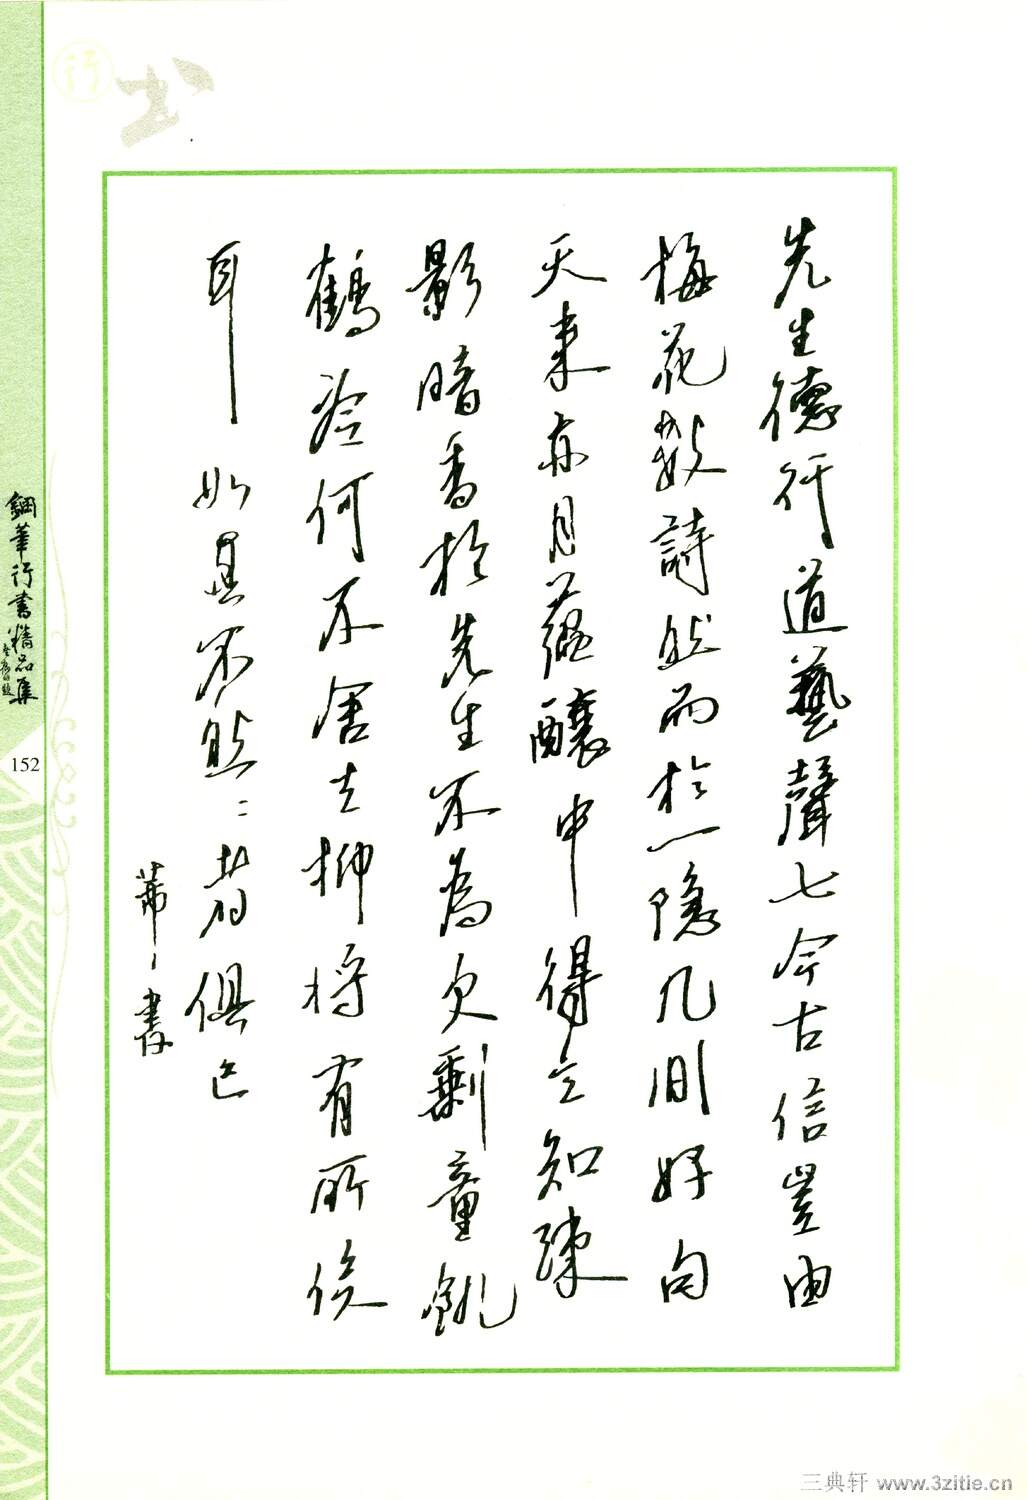 行书
先生德行道藝聲七今古信豈由
梅花数詩然而於一隐几間好句
天来亦月蕴釀中得之知疎
影暗香於先生不為欠剩童飢
鶴冷何不舍去抑将有所俟
耳 如其不然 者俱已
書
鋼筆行書精品集
152
三典轩 www.3zitie.cn